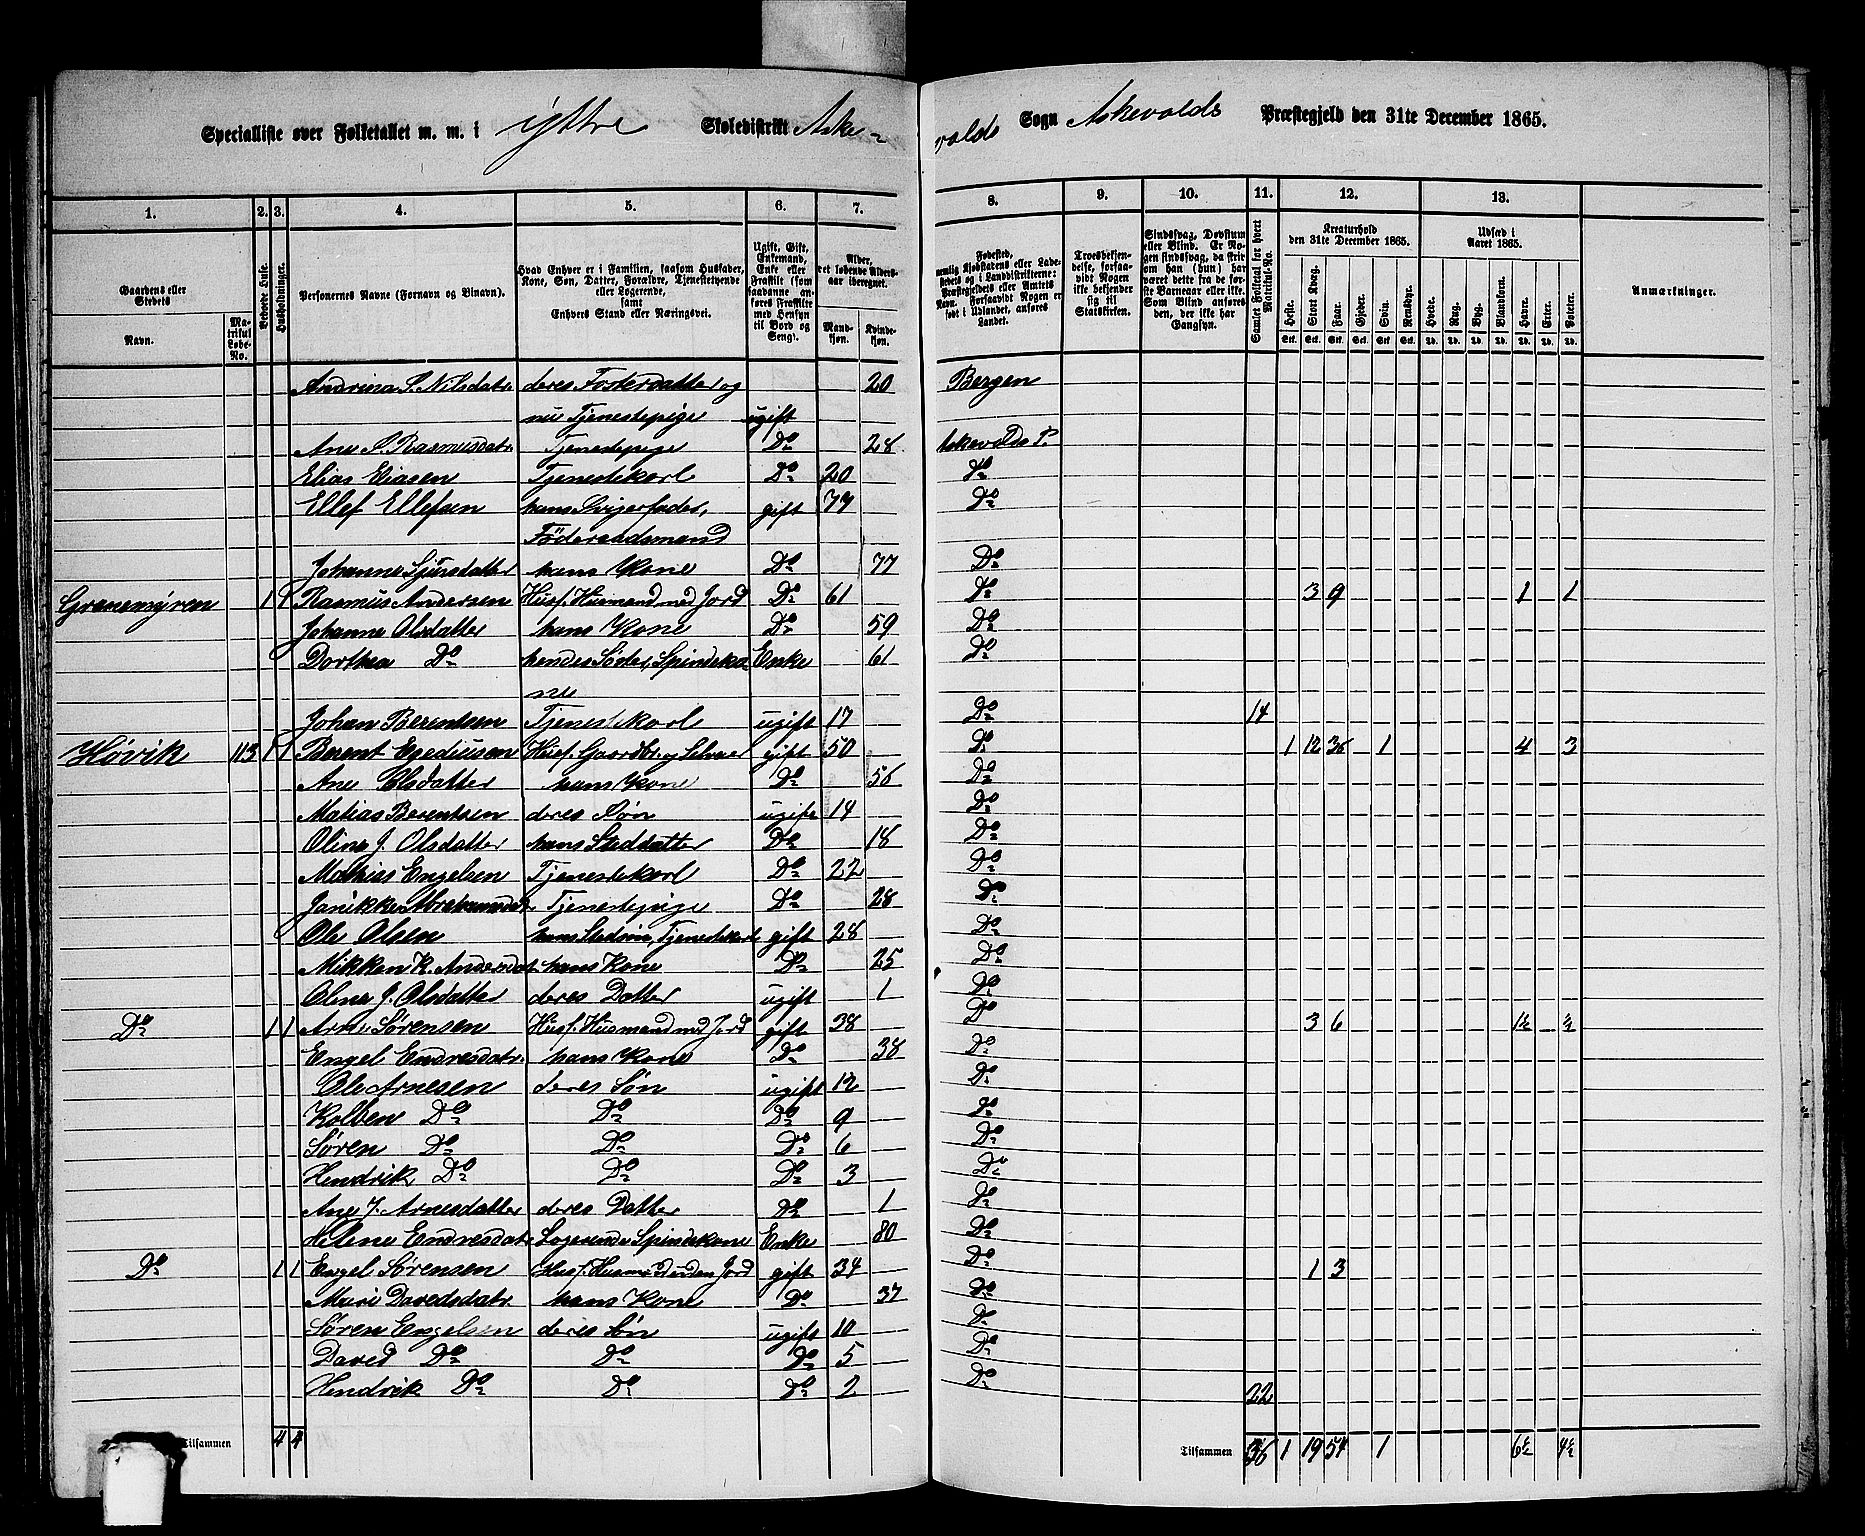 Specialliste over Folketallet m. m. i yttre Skoledistrikt Aske-
volds Sogn Askevolds Præstegjeld den 31te December 1865.
1. 2. 3. 4. 5. 6. 7. 8. 9. 10. 11. 12. 13.
Gaardenes eller Stedets
Navn.
Matrikul Løbe-No.
Beboede Huse.
Husholdninger.
Personernes Navne (Fornavn og Binavn).
Hvad Enhver er i Familien, saasom Husfader, Kone, Søn, Datter, Forældre, Tjenestetyende eller Logerende, samt Enhvers Stand eller Næringsvei.
Ugift, Gift, Enkemand, Enke eller Fraskilt
Alder, det løbende Aldersaar iberegnet.
Mandkjøn.
Kvindekjøn.
Fødested,
Troesbekjendelse, forsaavidt Nogen ikke bekjender sig til Statskirken.
Sindssvag, Døvstum eller Blind.
Samlet Folketal for hvert Matrikul-No.
Kreaturhold den 31te December 1865.
Heste. Stort Kvæg. Faar. Gjeder. Svin. Rensdyr.
Udsæd i Aaret 1865.
Hvede. Rug. Byg. Blandkorn. Havre. Erter. Poteter.
Anmærkninger.
Andrina S. Nilsdatr deres Fosterdatter og 20 Bergen
nu Tjenestepige ugift
Ane P. Rasmusdatr Tjenestepige Do 28 Askevolds P.
Elias Eiasen Tjenestekarl Do 20 Do
Ellef Ellefsen hans Svigerfader, gift 77 Do
Föderaadsmand
Johanne Sjursdatter hans Kone Do 77 Do
Grønemyren 1 1 Rasmus Andersen Husf. Husmand med Jord Do 61 Do 3 9 1 1
Johanne Olsdatter hans Kone Do 59 Do
Dorthea Do hendes Søster, Spindeko Enke 61 Do
ne
Johan Berentsen Tjenestekarl ugift 17 Do 14
Høvik 113 1 1 Berent Egediussen Husf. Gaardbr. og Selveier gift 50 Do 1 12 36 1 4 3
Ane Olsdatter hans Kone Do 56 Do
Matias Berentsen deres Søn ugift 14 Do
Oline J. Olsdatter hans Steddatter Do 18 Do
Mathias Engelsen Tjenestekarl Do 22 Do
Janikke Abrahamsdatr Tjenestepige Do 28 Do
Ole Olsen hans Stedsøn, Tjenestekarl gift 28 Do
Mikken K. Andersdat hans Kone Do 25 Do
Oline J. Olsdatter deres Datter ugift 1 Do
Do 1 1 Arne Sørensen Husf. Husmand med Jord gift 38 Do 3 6 1½ ½
Engel Endresdatr. hans Kone Do 38 Do
Ole Arnesen deres Søn ugift 12 Do
Kolben Do Do Do 9 Do
Søren Do Do Do 6 Do
Hendrik Do Do Do 3 Do
Ane J. Arnesdatter deres Datter Do 1 Do
Helene Endresdatr Logerende Spindekone Enke 80 Do
Do 1 1 Engel Sørensen Husf. Husmand uden Jord gift 34 Do 1 3
Mari Davedsdatr. hans Kone Do 37 Do
Søren Engelsen deres Søn ugift 10 Do
Daved Do Do Do 5 Do
Hendrik Do Do Do 2 Do 22
Tilsammen 4 4 Tilsammen 36 1 19 54 1 6½ 4½